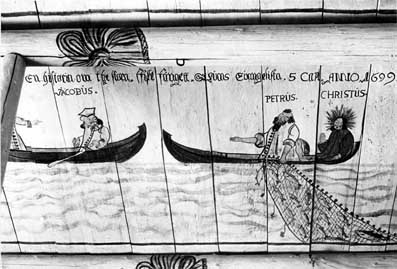 En historia om the store fiske fånget. S. Lucas Evangelista. 5 Cap. ANNO. 1699
JACOBUS.
PETRUS.
CHRISTUS.